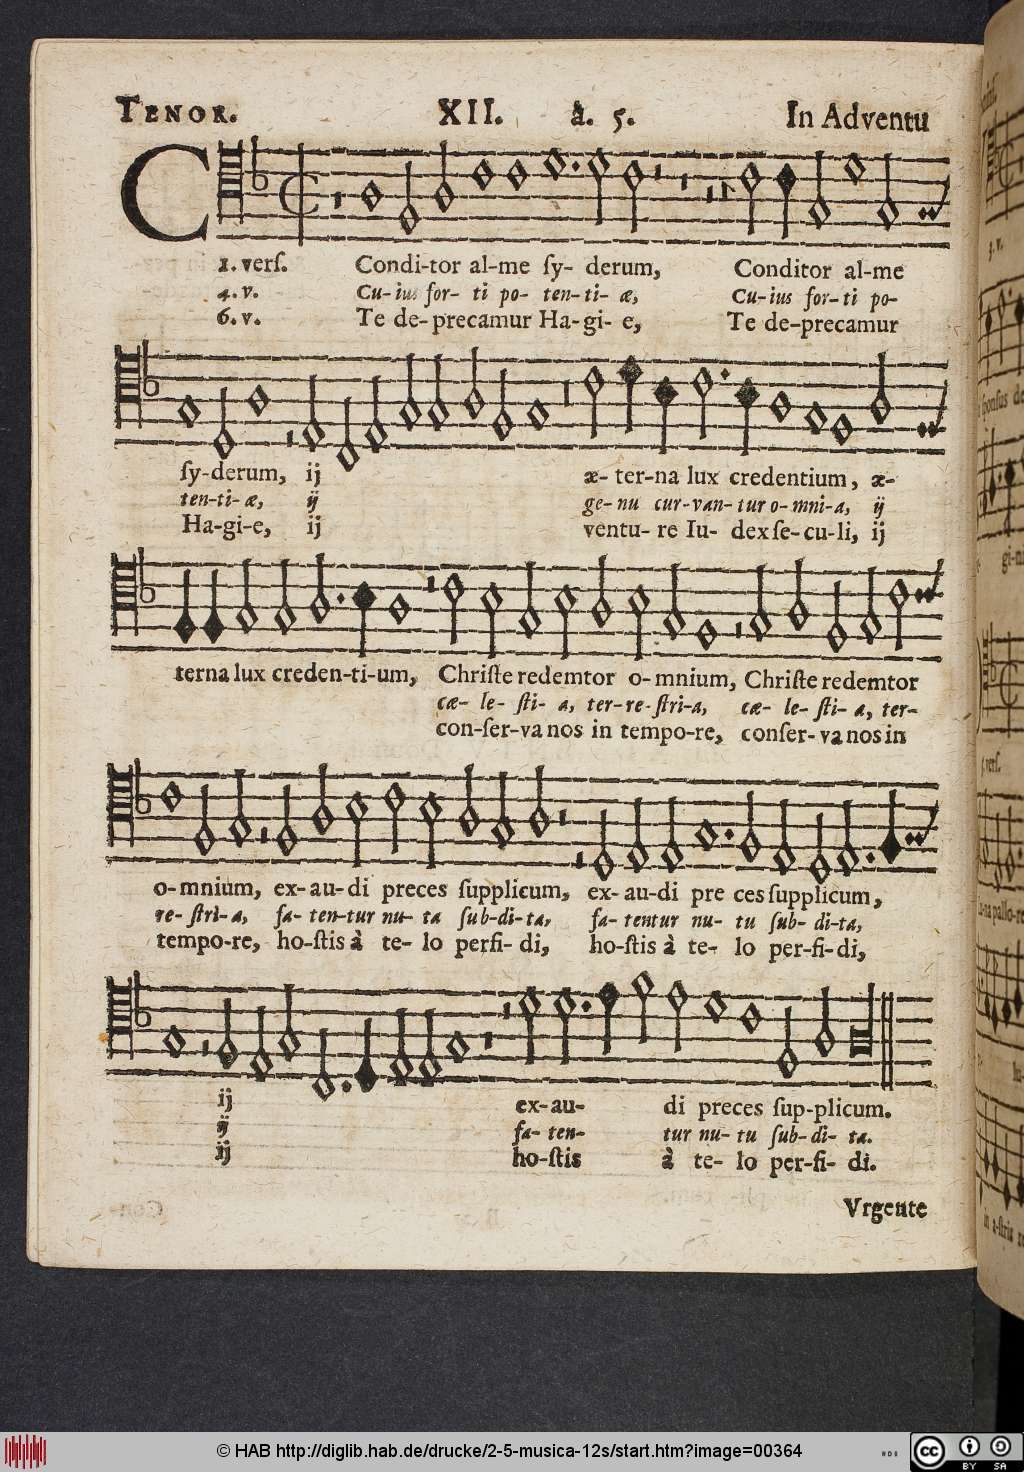 TENOR. XII. à. 5. In Adventu
C
1. verſ. Condi-tor al-me ſy- derum, Conditor al-me
4. v. Cu-ius for- ti po- ten-ti- æ, Cu-ius for-ti po-
6. v. Te de-precamur Ha-gi- e, Te de-precamur
ſy-derum, ij æ- ter-na lux credentium, æ-
ten-ti- æ, ij ge- nu cur-van-tur o- mni-a, ij
Ha-gi-e, ij ventu- re Iu- dex ſe-cu-li, ij
terna lux creden-ti-um, Chriſte redemtor o-mnium, Chriſte redemtor
cæ- le- ſti- a, ter-re-ſtri-a, cæ- le- ſti- a, ter-
con-ſer-va nos in tempo-re, conſer-va nos in
o-mnium, ex-au-di preces ſupplicum, ex-au-di pre ces ſupplicum,
re-ſtri-a, fa-ten-tur nu- tu ſub-di-ta, fa-tentur nu- tu ſub- di-ta,
tempo-re, ho-ſtis à te- lo perfi- di, ho-ſtis à te- lo per-fi-di,
ij ex-au- di preces ſup-plicum.
ij fa- ten- tur nu- tu ſub- di- ta.
ij ho-ſtis à te- lo per-fi- di.
Vrgente
© HAB http://diglib.hab.de/drucke/2-5-musica-12s/start.htm?image=00364
HAB
cc BY SA